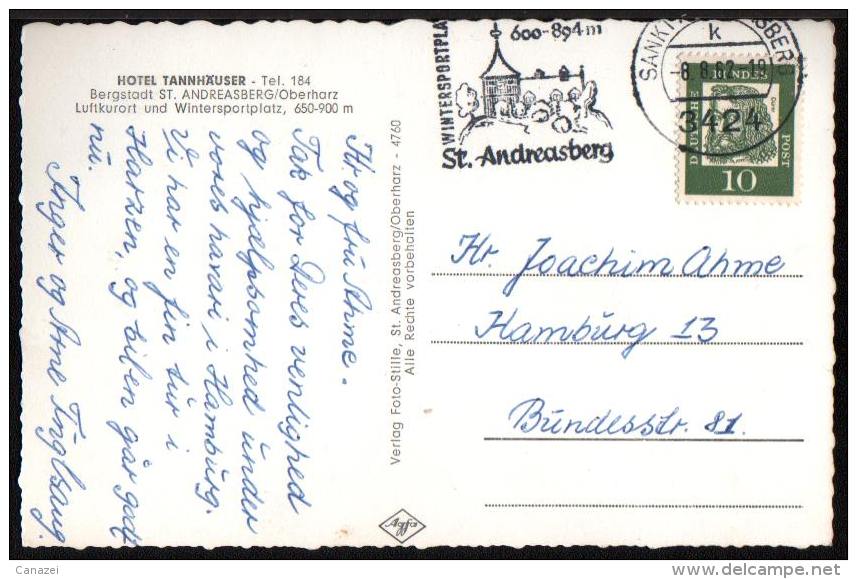 HOTEL TANNHÄUSER - Tel. 184
Bergstadt ST. ANDREASBERG/Oberharz
Luftkurort und Wintersportplatz, 650-900 m
Hr. og frú Ahme.
Tak for Deres venlighed
og hjælpsomhed ŭnder
vores havari i Hambŭrg.
Vi har en fin tŭr i
Harzen, og bilen går godt
nŭ.
Inger og Arne Fŭglsang.
Verlag Foto-Stille, St. Andreasberg/Oberharz - 4760
Alle Rechte vorbehalten
Agfa
WINTERSPORTPLA
600-894m
St. Andreasberg
SANKT ANDREASBERG
k
-8.8.62-19
3424
DEUTSCHE BUNDES POST
Dürer
10
Hr. Joachim Ahme
Hambŭrg 13
Bŭndesstr. 81.
Canazei
www.delcampe.net